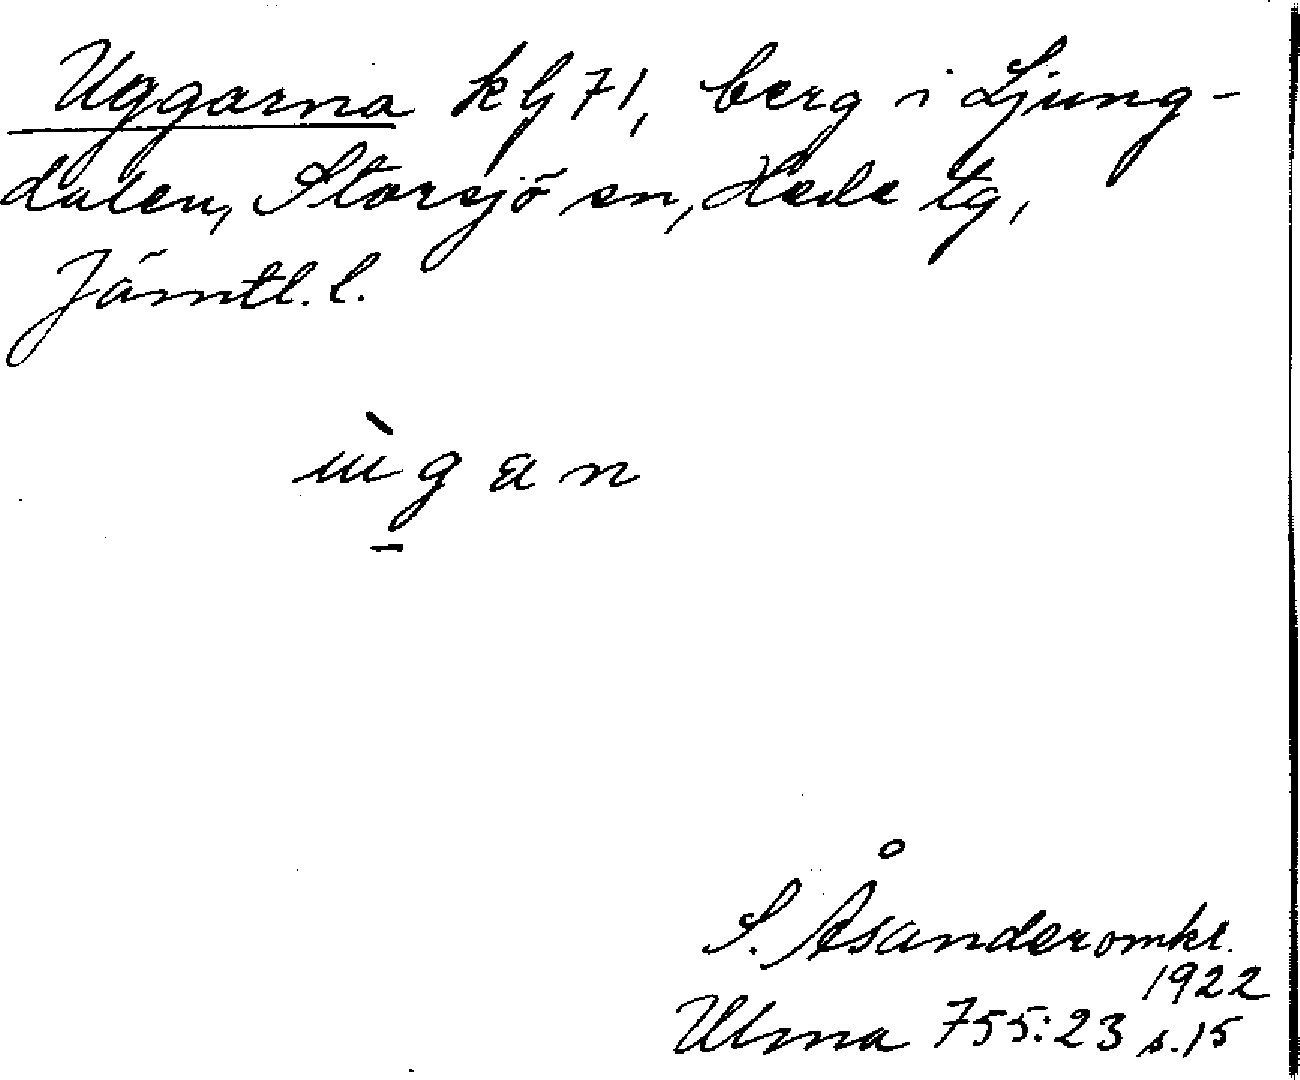 Uggarna k G 71, berg i Ljung-
dalen, Storsjö sn, Hede tg,
Jämtl. l.
ùgan
S. Åsander omkr.
1922
Ulma 755:23 s. 15